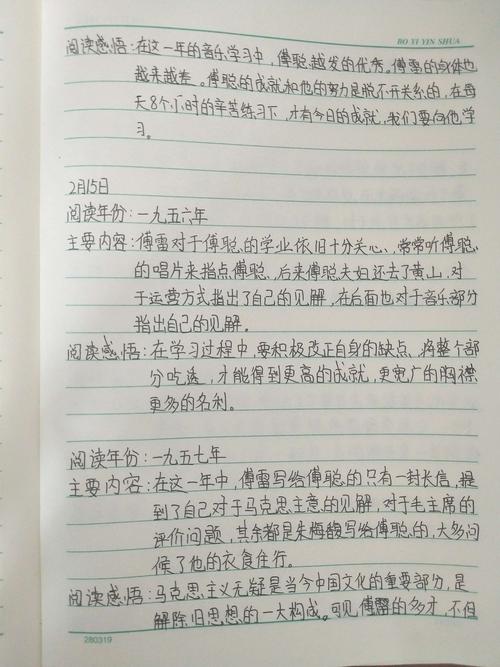 BO YI YIN SHUA
阅读感悟:在这一年的音乐学习中,傅聪越发的优秀。傅雷的身体也
越来越差。傅聪的成就和他的努力是脱不开关系的,在每
天8个小时的辛苦练习下,才有今日的成就,我们要向他学
习。
2月15日
阅读年份:一九五六年
主要内容:傅雷对于傅聪的学业依旧十分关心、常常听傅聪
的唱片来指点傅聪、后来傅聪夫妇还去了黄山,对
于运营方式指出了自己的见解,在后面也对于音乐部分
指出自己的见解。
阅读感悟:在学习过程中,要积极改正自身的缺点、将整个部
分吃透,才能得到更高的成就,更宽广的胸襟
更多的名利。
阅读年份:一九五七年
主要内容:在这一年中,傅雷写给傅聪的只有一封长信,提
到了自己对于马克思主意的见解,对于毛主席的
评价问题,其余都是朱梅馥写给傅聪的,大多问
候了他的衣食住行。
阅读感悟:马克思主义无疑是当今中国文化的重要部分,是
解除旧思想的一大构成。可见傅雷的多才,不但
280319